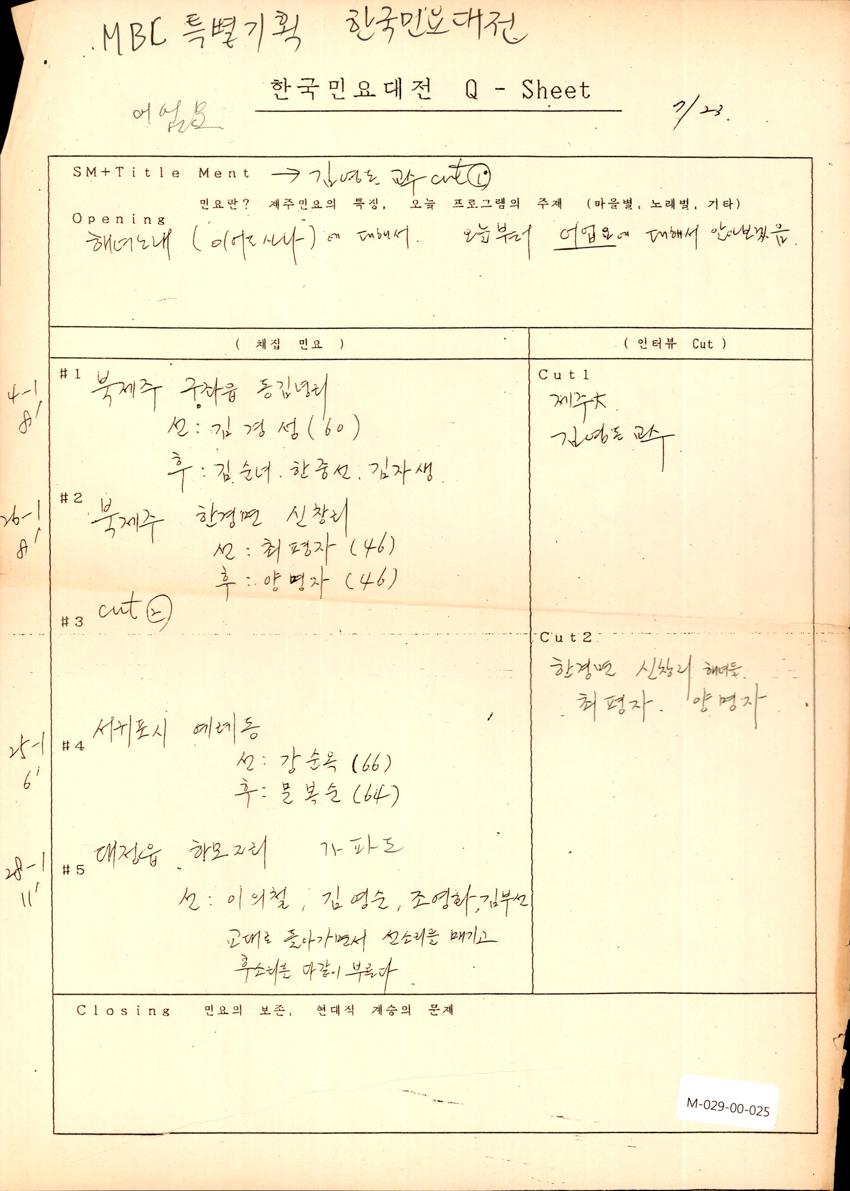 MBC 특별기획 한국민요대전
한국민요대전 Q - Sheet
어업요
7/23.
SM+Title Ment → 김영돈 교수 cut ①
민요란? 제주민요의 특징, 오늘 프로그램의 주제 (마을별, 노래별, 기타)
Opening
해녀노래 (이어도사나)에 대해서. 오늘부터 어업요에 대해서 알아보겠음.
( 채집 민요 )
( 인터뷰 Cut )
4-1
8'
#1 북제주 구좌읍 동김녕리
선: 김경성(60)
후: 김순녀. 한중선. 김자생
Cut1
제주大
김영돈 교수
26-1
8'
#2 북제주 한경면 신창리
선: 최평자 (46)
후: 양명자 (46)
#3 cut ②
Cut2
한경면 신창리 해녀들.
최평자. 양명자
25-1
6'
#4 서귀포시 예례동
선: 강순옥 (66)
후: 문복순 (64)
28-1
11'
#5 대정읍 하모자리 가파도
선: 이의철, 김영순, 조영화, 김부선
교대로 돌아가면서 선소리를 메기고
후소리는 다같이 부른다
Closing 민요의 보존, 현대적 계승의 문제
M-029-00-025